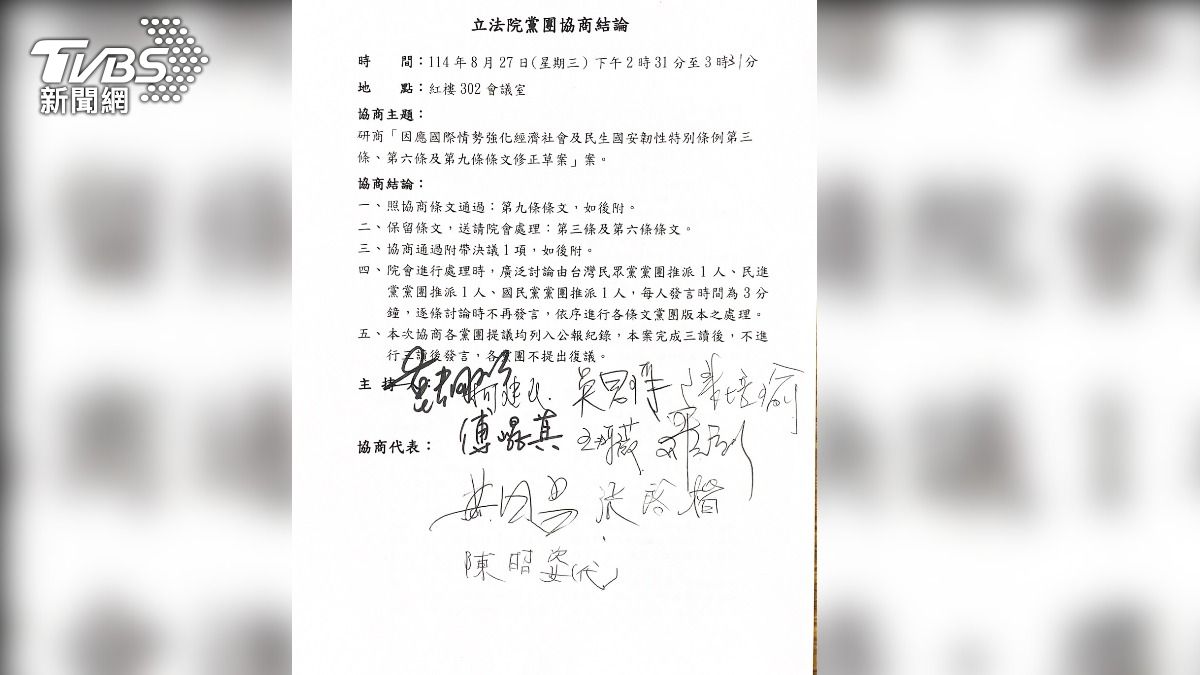 TVBS
新聞網
立法院黨團協商結論
時 間：114年8月27日(星期三)下午2時31分至3時31分
地 點：紅樓302會議室
協商主題：
研商「因應國際情勢強化經濟社會及民生國安韌性特別條例第三
條、第六條及第九條條文修正草案」案。
協商結論：
一、照協商條文通過：第九條條文，如後附。
二、保留條文，送請院會處理：第三條及第六條條文。
三、協商通過附帶決議1項，如後附。
四、院會進行處理時，廣泛討論由台灣民眾黨黨團推派1人、民進
黨黨團推派1人、國民黨黨團推派1人，每人發言時間為3分
鐘，逐條討論時不再發言，依序進行各條文黨團版本之處理。
五、本次協商各黨團提議均列入公報紀錄，本案完成三讀後，不進
行三讀後發言，各黨團不提出復議。
主持人：
柯建民 吳思瑤 陳培瑜
協商代表：
傅崐萁
黃國昌 張啓楷
陳昭姿(代)